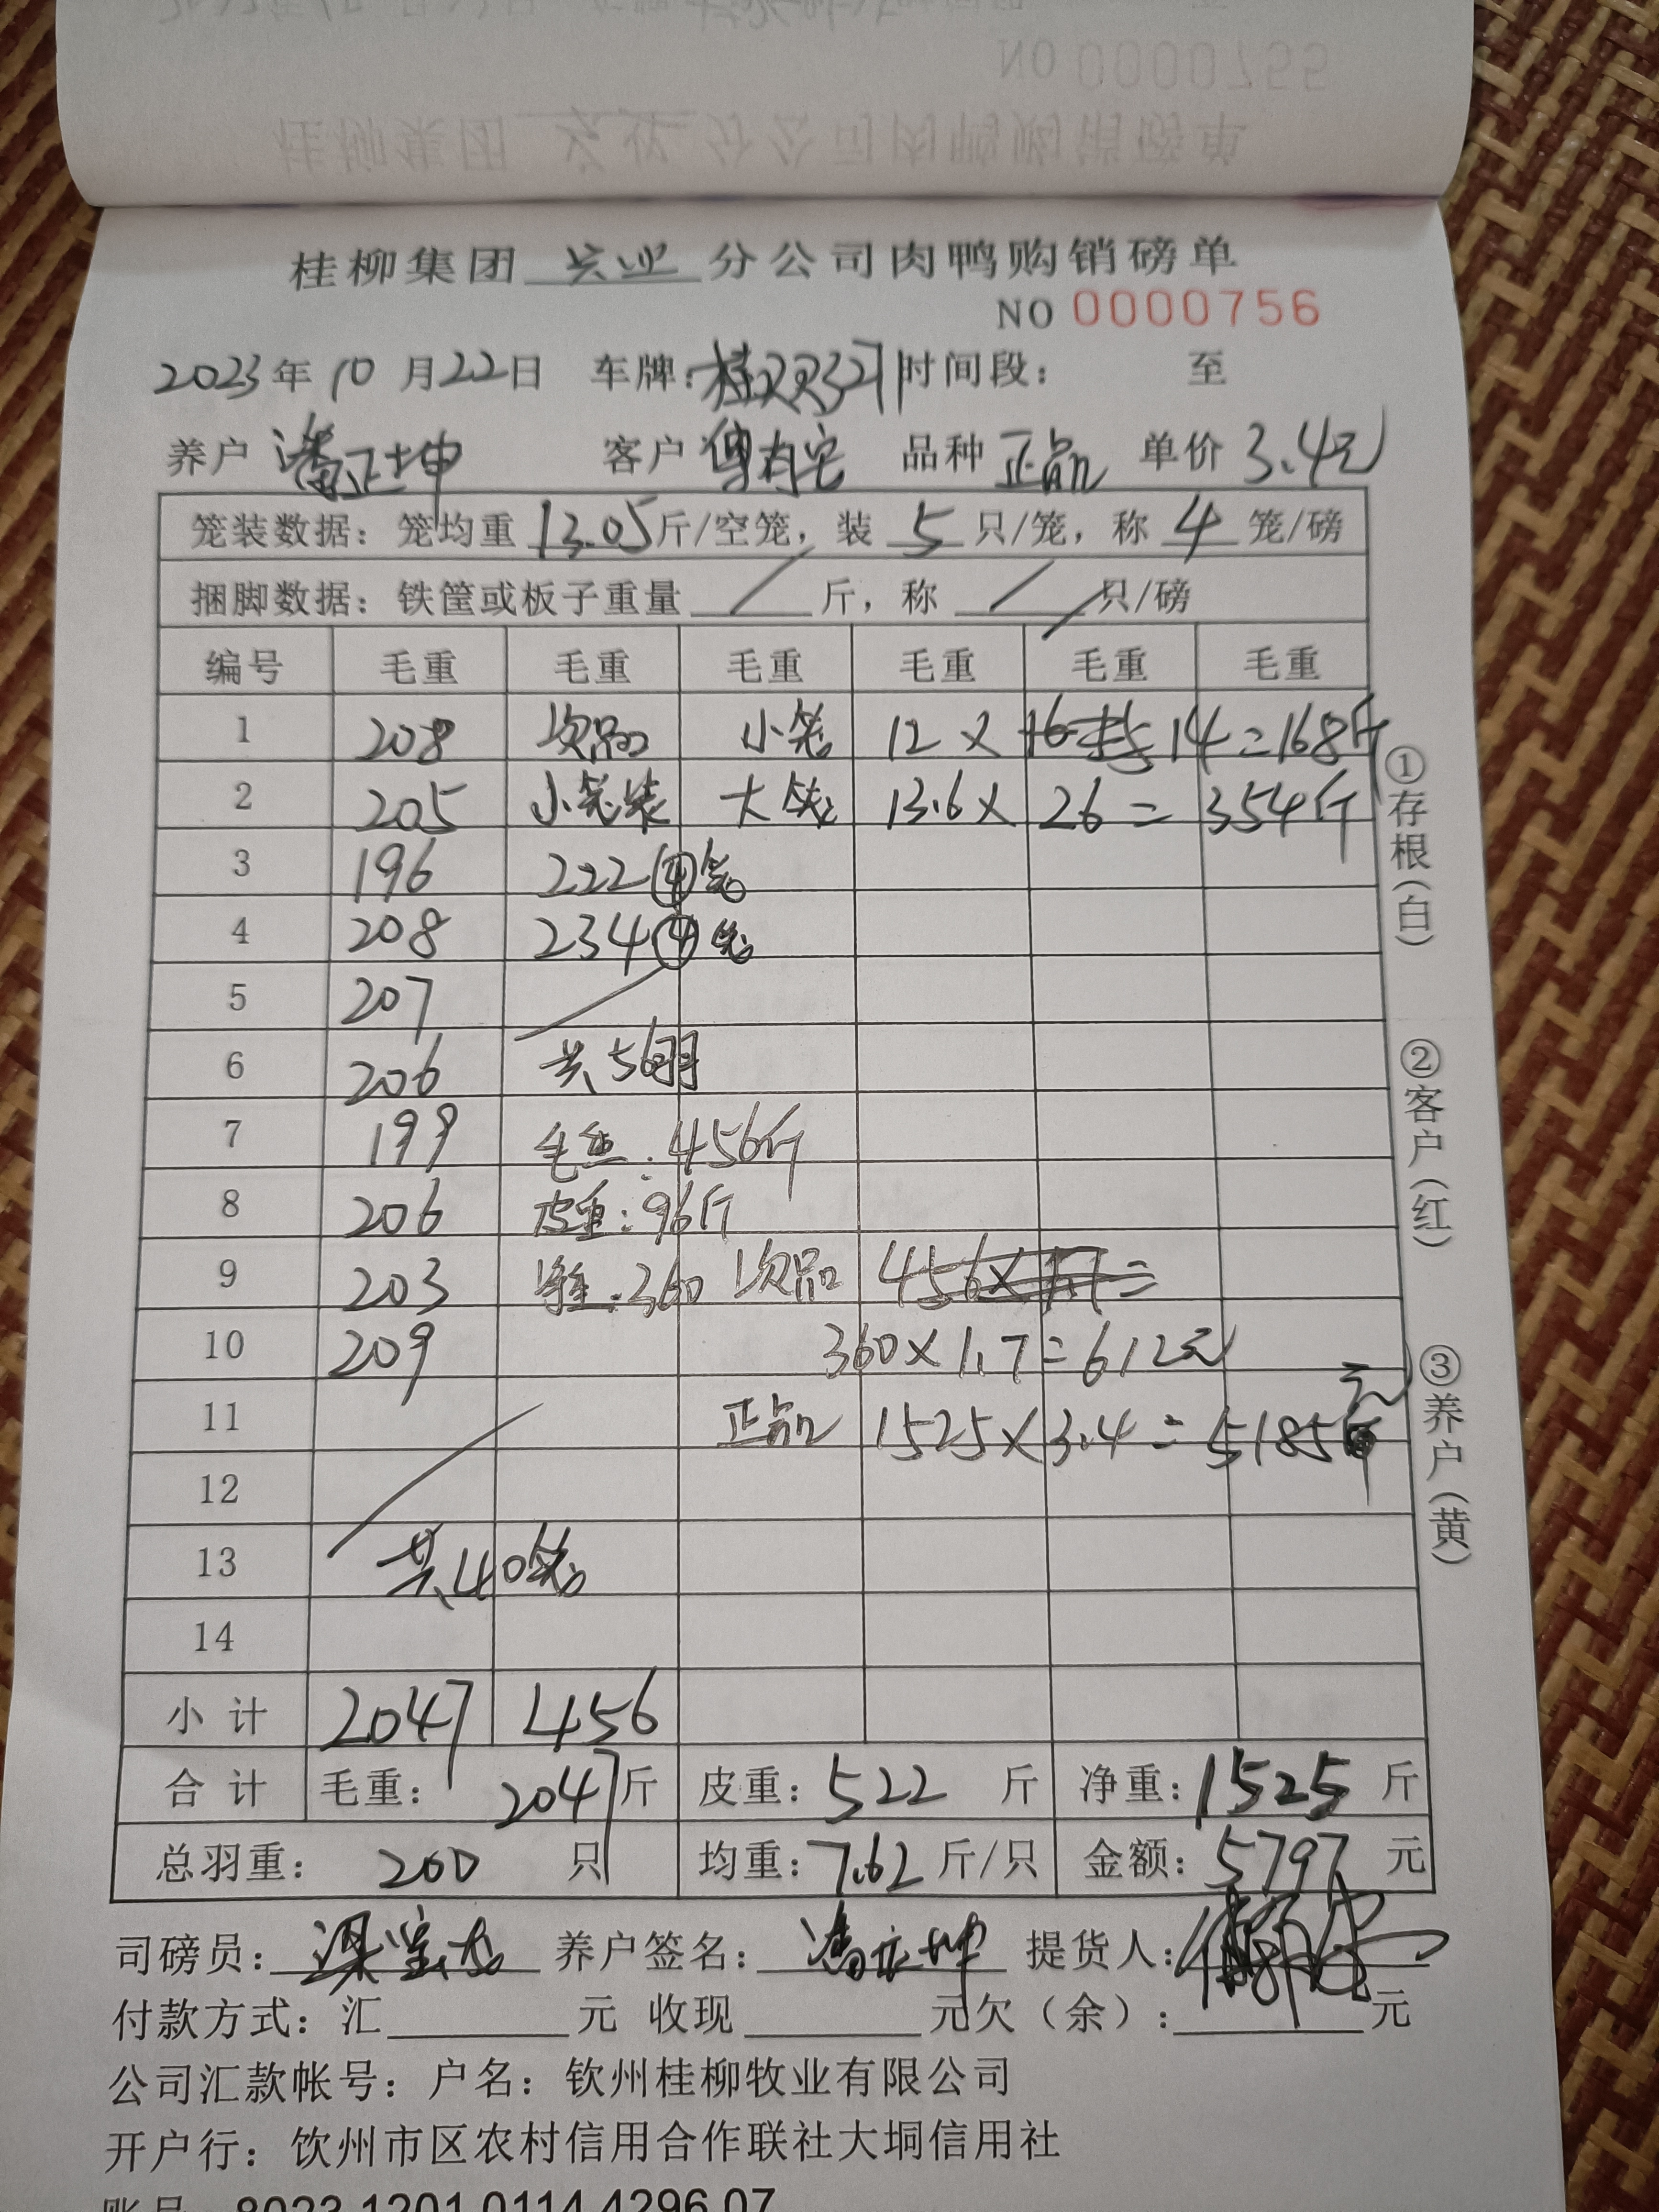 NO 0000755
桂柳集团 兴业 分公司肉鸭购销磅单
桂柳集团 兴业 分公司肉鸭购销磅单
NO 0000756
2023年10月22日 车牌: 时间段: 至
养户 潘正坤 客户 品种 正品 单价 3.4元
笼装数据: 笼均重 13.05 斤/空笼, 装 5 只/笼, 称 4 笼/磅
捆脚数据: 铁筐或板子重量 / 斤, 称 / 只/磅
编号 毛重 毛重 毛重 毛重 毛重 毛重
1 208 次品 小笼 12 × 14=168斤
2 205 小笼装 大笼 13.6× 26= 354斤
3 196 222④笼
4 208 234④笼
5 207
6 206 共56羽
7 199 毛重:456斤
8 206 皮重:96斤
9 203 净重:360 次品 456×1.7=
10 209 360×1.7=612元
11 正品 1525×3.4=5185元
12
13 共40笼
14
小计 2047 456
合计 毛重: 2047斤 皮重:522 斤 净重:1525 斤
总羽重: 200 只 均重:7.62斤/只 金额:5797 元
司磅员: 养户签名:潘正坤 提货人:
付款方式: 汇 元 收现 元欠(余): 元
公司汇款帐号: 户名: 钦州桂柳牧业有限公司
开户行: 饮州市区农村信用合作联社大垌信用社
账号 8023 1201 0114 4296 07
①存根(白)
②客户(红)
③养户(黄)